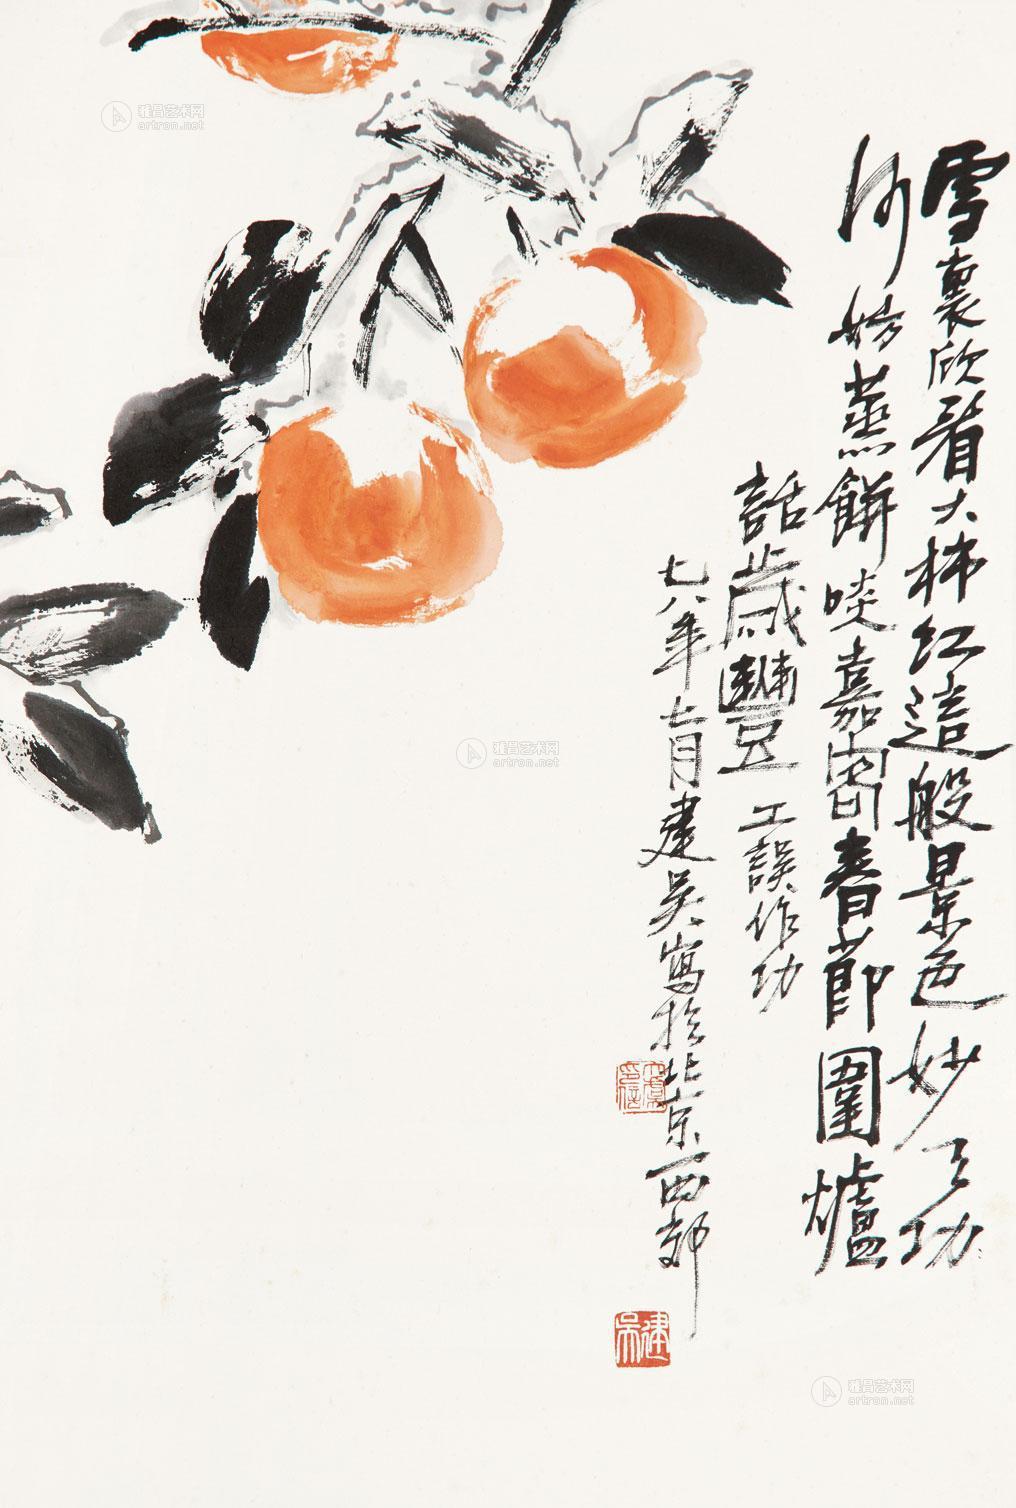 雪裏欣看大柿红這般景色妙天功
何妨蒸餅啖嘉客春節圍爐
話歲豐 工誤作功
七八年七月建吴寫於北京西郊
建吴
雅昌艺术网
artron.net
雅昌艺术网
artron.net
雅昌艺术网
artron.net